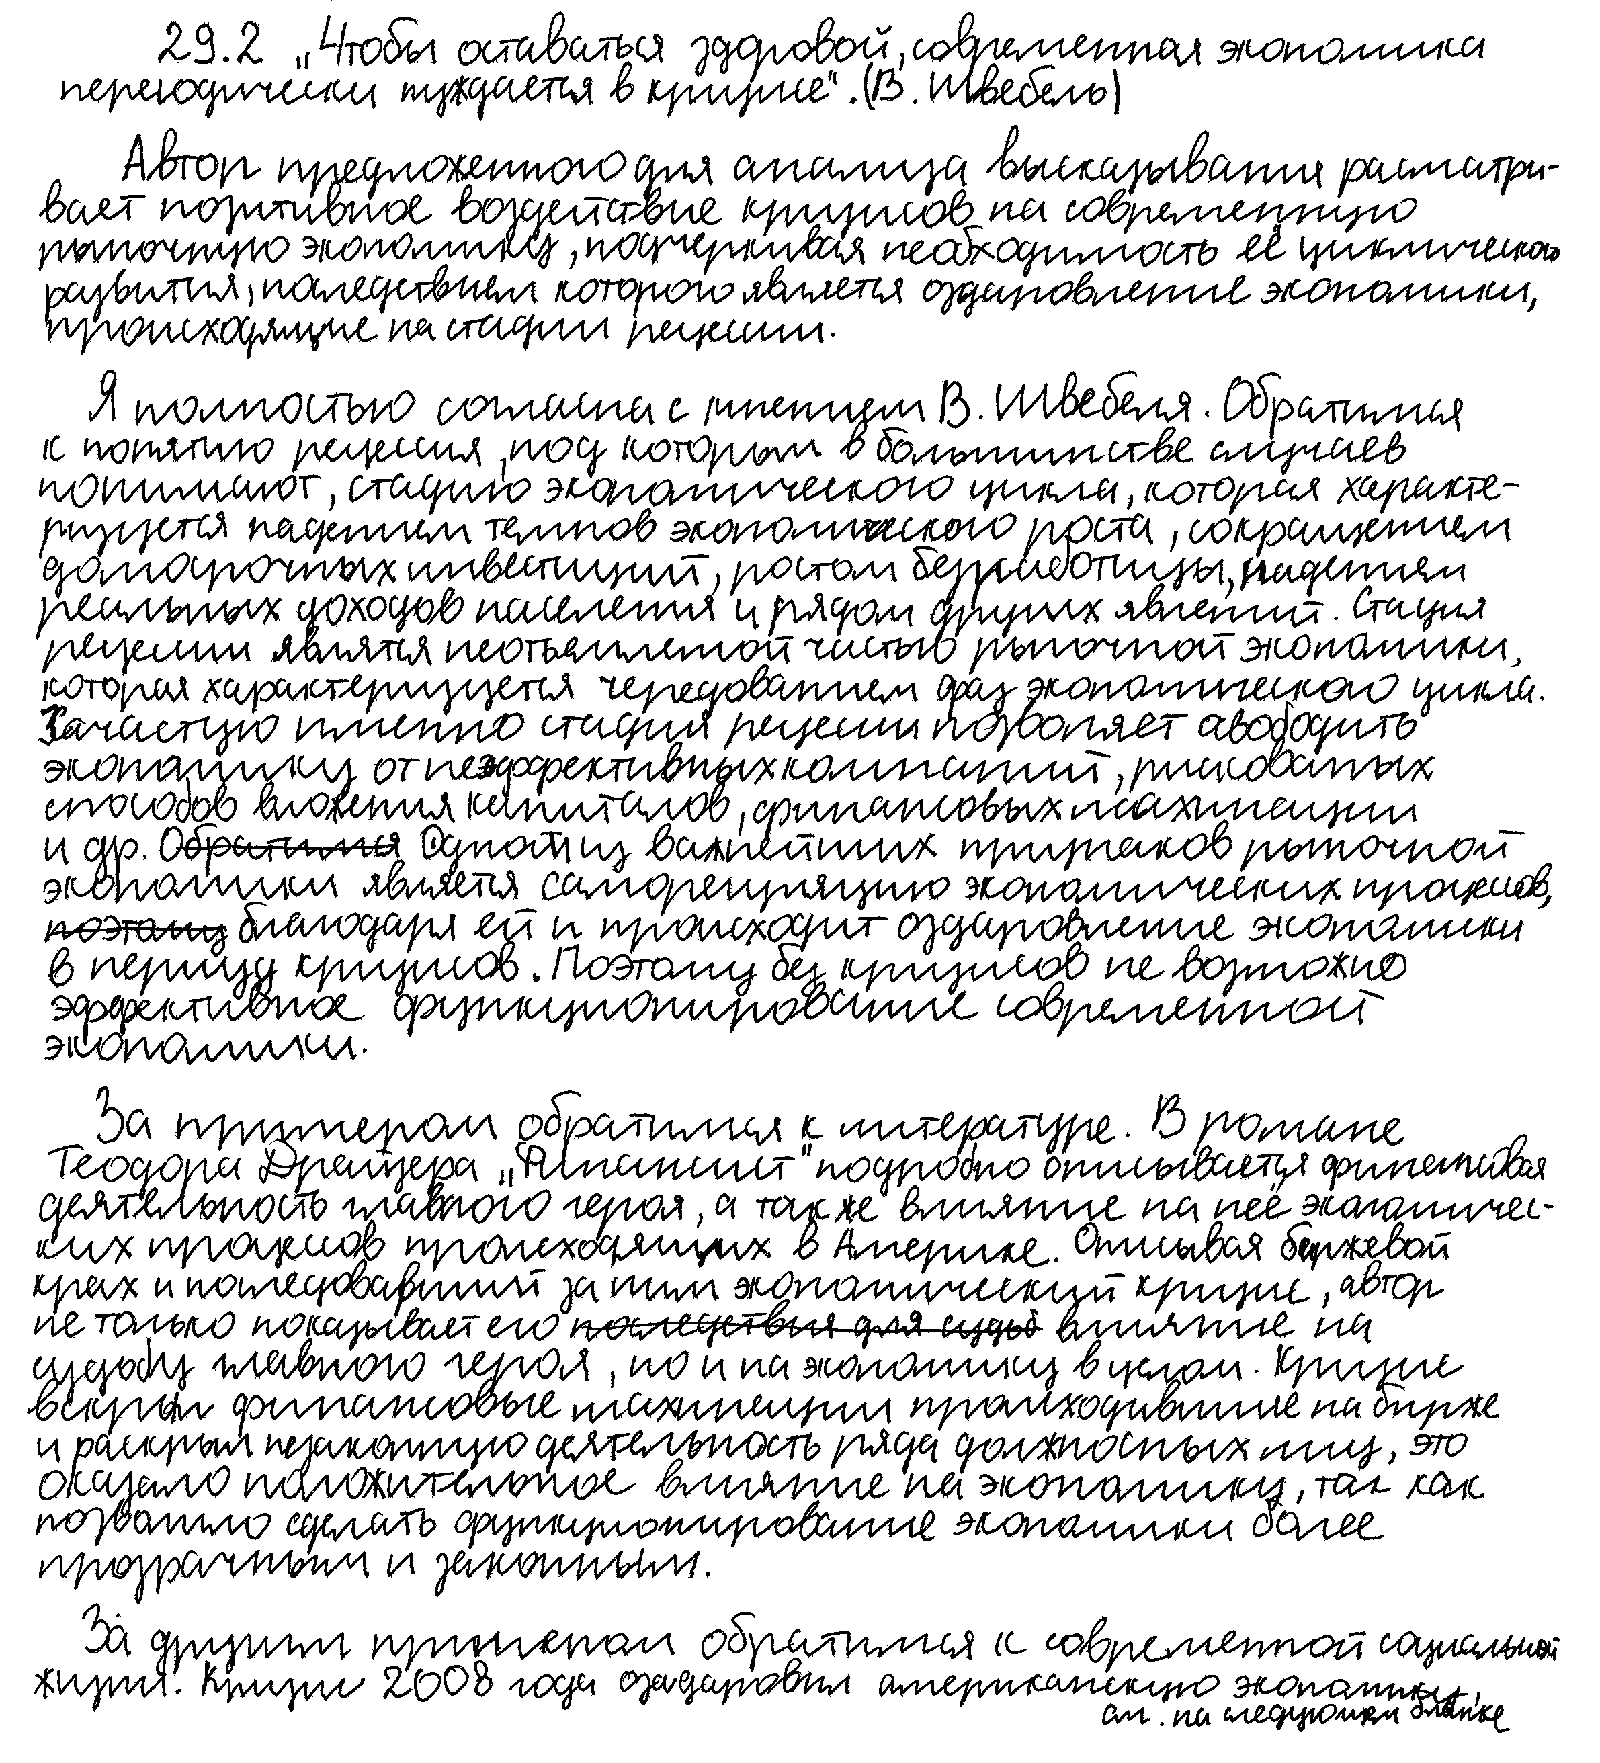 29.2 „Чтобы оставаться здоровой, современная экономика
периодически нуждается в кризисе". (В. Швебель)
Автор предложенного для анализа высказывания рассматри-
вает позитивное воздействие кризисов на современную
рыночную экономику, подчеркивая необходимость её циклического
развития, последствием которого является оздоровление экономики,
происходящие на стадии рецессии.
Я полностью согласна с мнением В. Швебеля. Обратимся
к понятию рецессия, под которым в большинстве случаев
понимают, стадию экономического цикла, которая характе-
ризуется падением темпов экономического роста, сокращением
долгосрочных инвестиций, ростом безработицы, падением
реальных доходов населения и рядом других явлений. Стадия
рецессии является неотъемлемой частью рыночной экономики,
которая характеризуется чередованием фаз экономического цикла.
Зачастую именно стадия рецессии позволяет освободить
экономику от неэффективных компаний, рискованых
способов вложения капиталов, финансовых махинации
и др. Обратимся Одной из важнейших признаков рыночной
экономики является саморегуляцию экономических процессов,
поэтому благодаря ей и происходит оздоровление экономики
в период кризисов. Поэтому без кризисов не возможно
эффективное функционирование современной
экономики.
За примером обратимся к литературе. В романе
Теодора Драйзера „Финансист" подробно описывается финансовая
деятельность главного героя, а также влияние на неё экономичес-
ких процессов происходящих в Америке. Описывая биржевой
крах и последовавший за ним экономический кризис, автор
не только показывает его последствия для судьб влияние на
судьбу главного героя, но и на экономику в целом. Кризис
вскрыл финансовые махинации происходившие на бирже
и раскрыл незаконную деятельность ряда должностных лиц, это
оказало положительное влияние на экономику, так как
позволило сделать функционирование экономики более
прозрачным и законным.
За другим примером обратимся к современной социальной
жизни. Кризис 2008 года оздоровил американскую экономику,
см. на следующем бланке